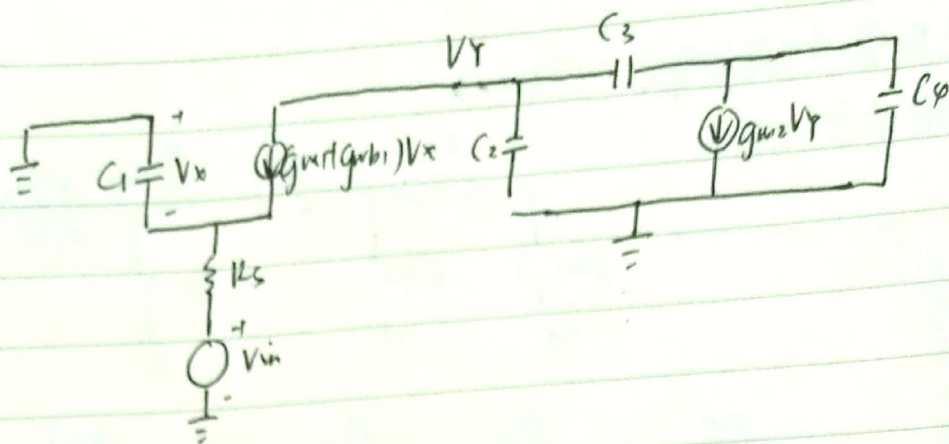 C3
VY
+
C1 Vx
-
gm1(gmb1)Vx
C2
gm2Vy
Cφ
Rs
+
Vin
-